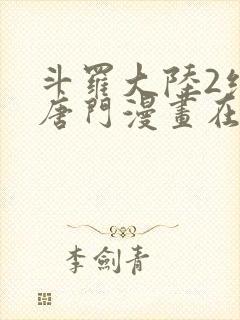 斗羅大陸2
唐門漫畫在
李劍青